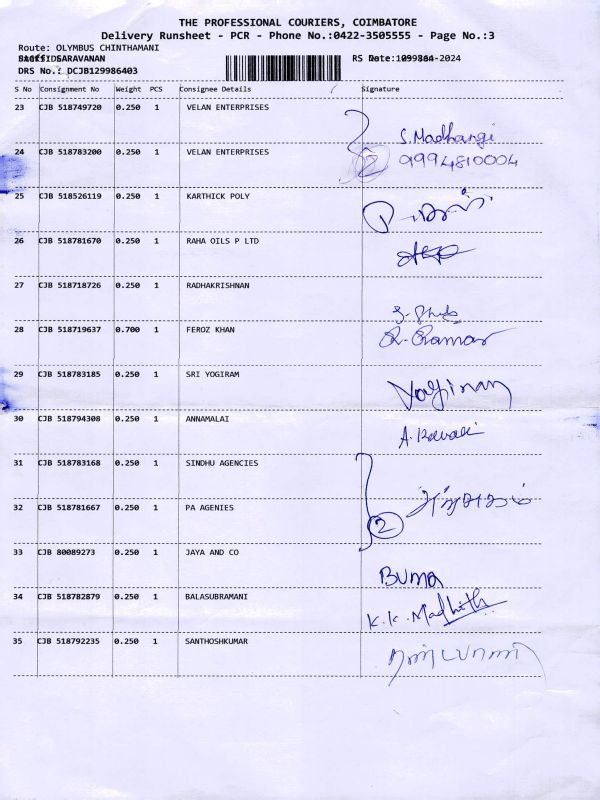 THE PROFESSIONAL COURIERS, COIMBATORE
Delivery Runsheet - PCR - Phone No.:0422-3505555 - Page No.:3
Route: OLYMBUS CHINTHAMANI
SARAVANAN RS No.:
DRS No.: DCJB129986403
S No Consignment No Weight PCS Consignee Details Signature
23 CJB 518749720 0.250 1 VELAN ENTERPRISES
S. Madhangi
24 CJB 518783200 0.250 1 VELAN ENTERPRISES 2 9994810004
25 CJB 518526119 0.250 1 KARTHICK POLY
26 CJB 518781670 0.250 1 RAHA OILS P LTD
27 CJB 518718726 0.250 1 RADHAKRISHNAN
28 CJB 518719637 0.700 1 FEROZ KHAN R. Raman
29 CJB 518783185 0.250 1 SRI YOGIRAM
30 CJB 518794308 0.250 1 ANNAMALAI
31 CJB 518783168 0.250 1 SINDHU AGENCIES
32 CJB 518781667 0.250 1 PA AGENIES
2
33 CJB 80089273 0.250 1 JAYA AND CO
BUMA
34 CJB 518782879 0.250 1 BALASUBRAMANI
K.K. Madhith
35 CJB 518792235 0.250 1 SANTHOSHKUMAR